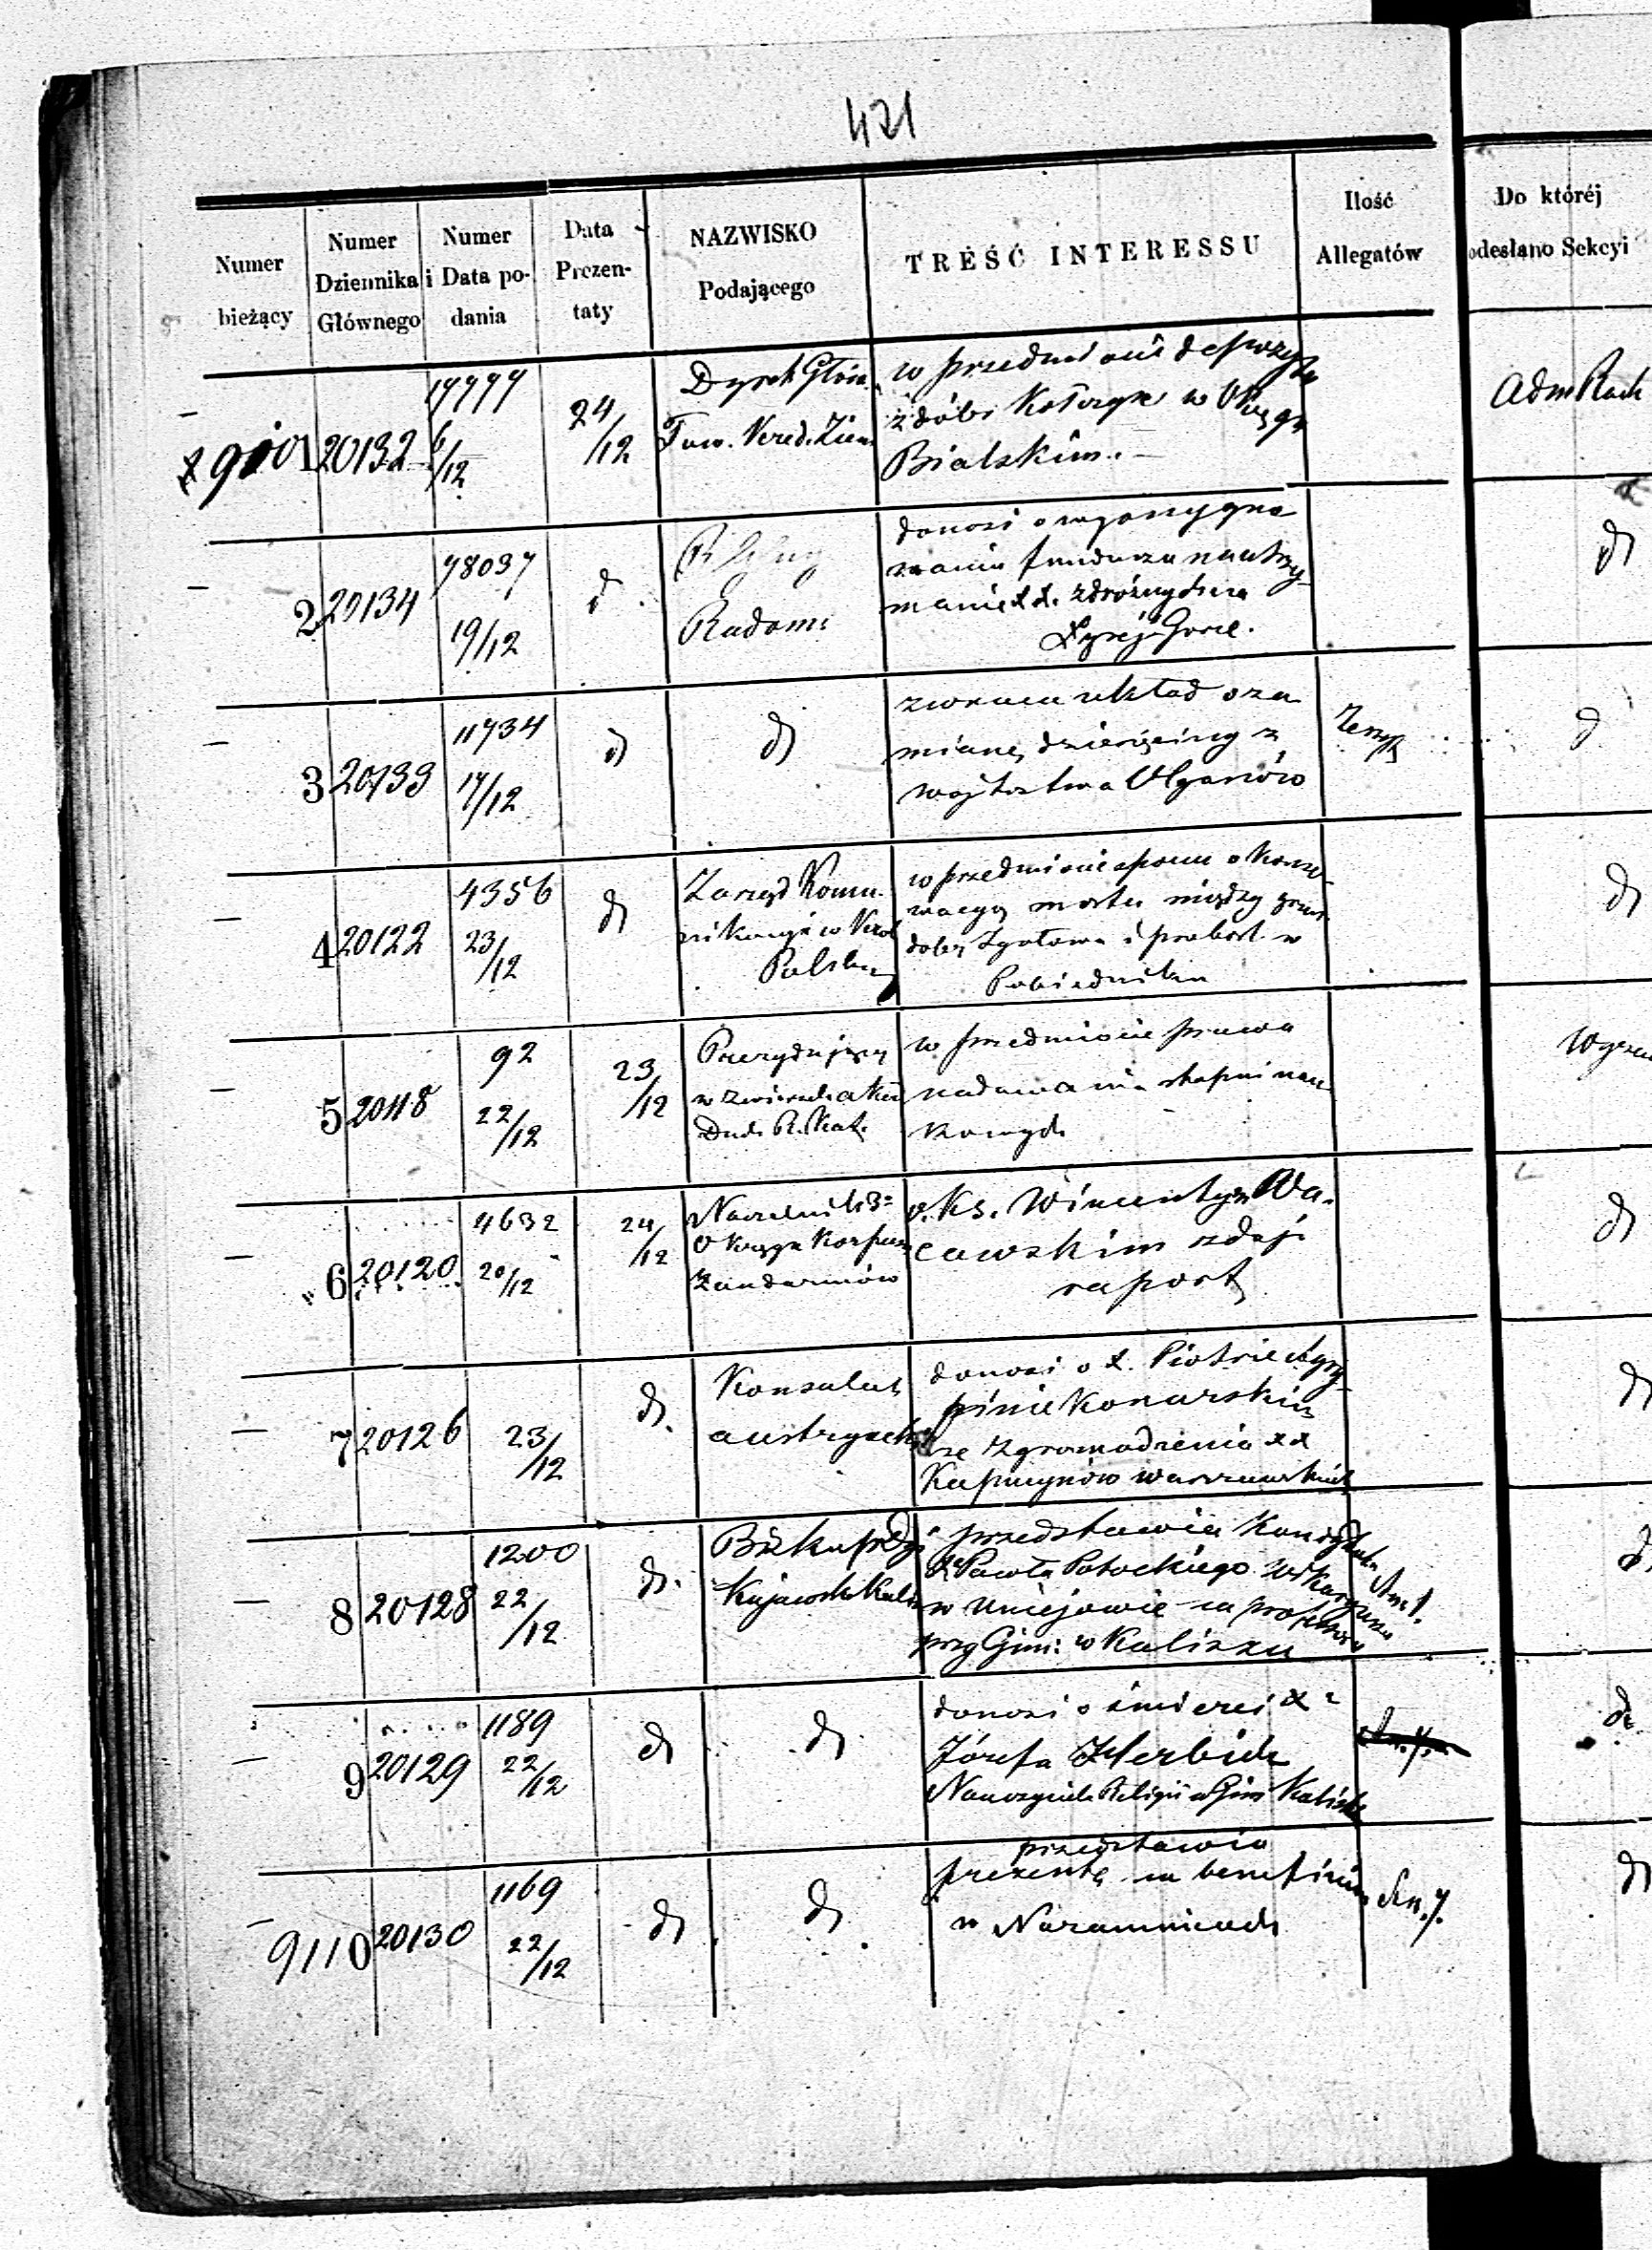 421
Numer bieżący
Numer Dziennika Głównego
Numer i Data podania
Data Prezentaty
NAZWISKO Podającego
TREŚĆ INTERESSU
Ilość Allegatów
Do któréj odesłano Sekcyi
9101 20132
6/12
24/12
Dyrek Głów.
Tow. Kred. Ziem
w przedmiocie
z dóbr w Okręgu
Bialskim.
Adm Rach
2 20134
78037
19/12
d
Radoms
donosi o wyassygno
waniu funduszu na utrzy-
manie XX. zdrożnych na
Łysej Górze.
d
3 20133
11734
17/12
d
d
zwraca układ o za
mianę dziesięciny z
wójtostwa
Zeszyt
d
4 20122
4356
23/12
d
Zarząd Komu
nikacyi w Król
Polskim
w przedmiocie sporu o
mostu między
i probost. w
Pobiedniku
d
5 20118
92
22/12
23/12
Prezydujący
w Akad
Duch. R. Kat.
w przedmiocie prawa
nadawania stopni nau
kowych
6 20120
4632
20/12
24/12
Naczelnik 3º
Okręgu Korpusu
Żandarmów
o Ks. Wincentym Wa-
cawskim zdaje
raport
d
7 20126
23/12
d.
Konsulat
austryacki
donosi o X. Piotrie Kry-
spinie Konarskim
ze Zgromadzenia XX
Kapucynów warszawskich
d
8 20128
1200
22/12
d.
Biskup Dyj
Kujawsko Kalis
przedstawia Kandydata
X Pawła Potockiego Wikaryusza
w Uniejowie na profesora
przy Gim: w Kaliszu
d
9 20129
1189
22/12
d
d
donosi o śmierci Xº
Józefa
Nauczyciela Religii w Gim Kalisk
d.
9110 20130
1169
22/12
d
d
przedstawia
prezentę na beneficium
w Naramnicach
d